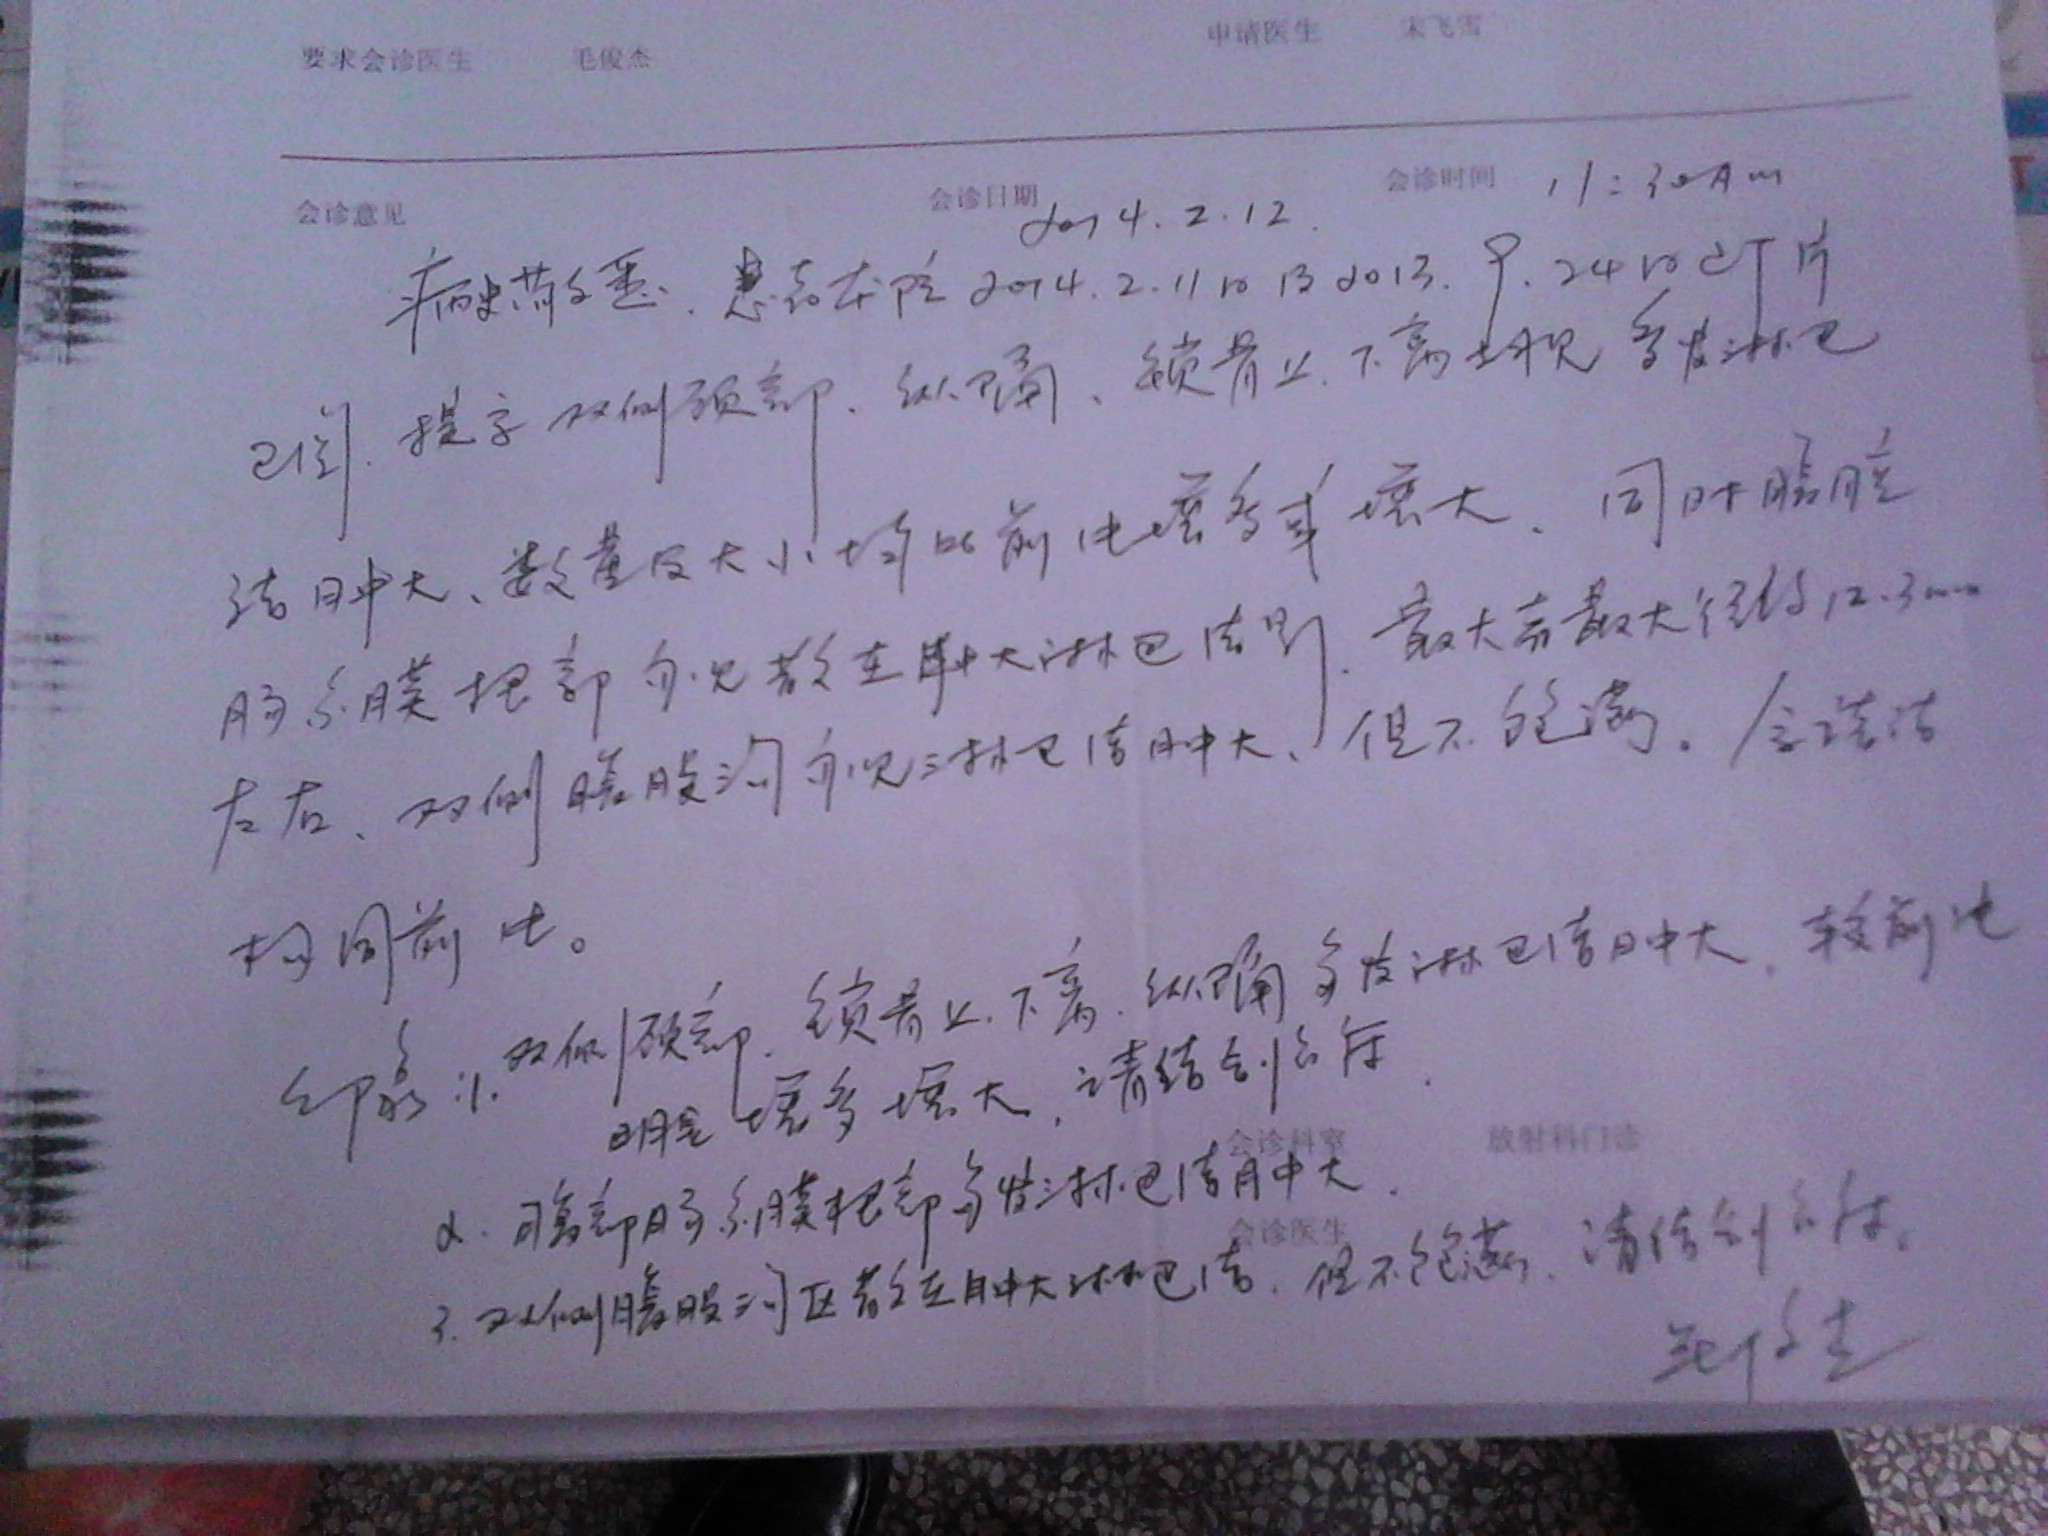 要求会诊医生 毛俊杰 申请医生 宋飞雪
会诊意见 会诊日期 2014.2.12. 会诊时间 11:30Am
病史敬悉.患者本院2014.2.11 2013.9.24 CT片
已阅.提示双侧颈部、纵隔、锁骨上.下窝均见多发淋巴
结肿大、数量及大小均比前片增多或增大、同时腹腔
肠系膜根部亦见散在肿大淋巴结影.最大者最大径约12.3mm
左右、双侧腹股沟亦见淋巴结肿大、但不饱满。余诸结
构同前片。
印象:1.双侧颈部.锁骨上.下窝.纵隔多发淋巴结肿大.较前片
明显增多增大.请结合临床.
2.腹部肠系膜根部多发淋巴结肿大.
3.双侧腹股沟区散在肿大淋巴结.但不饱满.请结合临床.
会诊科室 放射科门诊
会诊医生